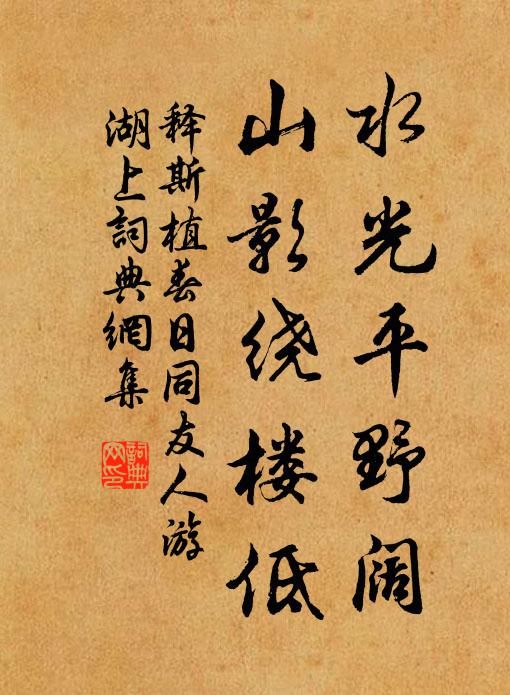 水光平野阔
山影绕楼低
释斯植春日同友人游
湖上詞典網集
詞典
网印